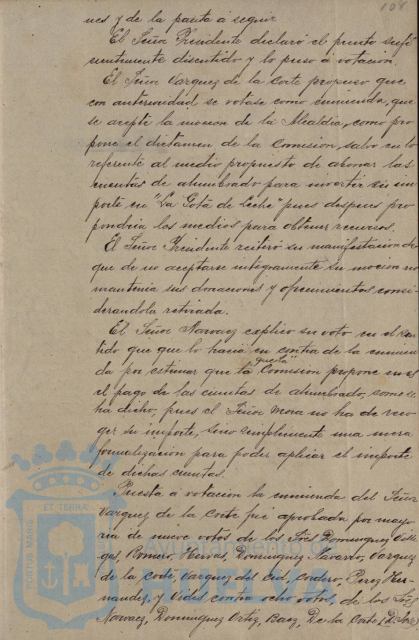 108
nes y de la pauta á seguir.
El Señor Presidente declaró el punto sufi-
cientemente discutido y lo puso á votación.
El Señor Vazquez de la Corte propuso que
con anterioridad se votase como enmienda, que
se acepte la mocion de la Alcaldía, como pro-
pone el dictamen de la Comision, salvo en lo
referente al medio propuesto de abonar las
cuentas de alumbrado para invertir su im-
porte en "La Gota de Leche" pues despues pro-
pondria los medios para obtener recursos.
El Señor Presidente reiteró su manifestacion de
que de no aceptarse integramente su mocion no
mantenia sus donaciones y ofrecimientos consi-
derandola retirada.
El Señor Narvaez explicó su voto en el sen-
tido que que lo hacia en contra de la enmien-
da por estimar que la Comision propone
el pago de las cuentas de alumbrado, como se
ha dicho, pues el Señor Mora no ha de reco-
ger su importe, sino simplemente una mera
formalizacion para poder aplicar el importe
de dichas cuentas.
Puesta á votación la enmienda del Señor
Vazquez de la Corte fué aprobada por mayo-
ria de nueve votos de los Sres Dominguez
Romero, Hervas, Dominguez Navarro, Vazquez
de la Corte, Vazquez del Cid, Cordero, Perez Her-
nandez, y Vides contra ocho votos, de los Sres
Narvaez, Dominguez Ortiz, Baez, De la Corte
PORTUS MARIS ET TERRÆ